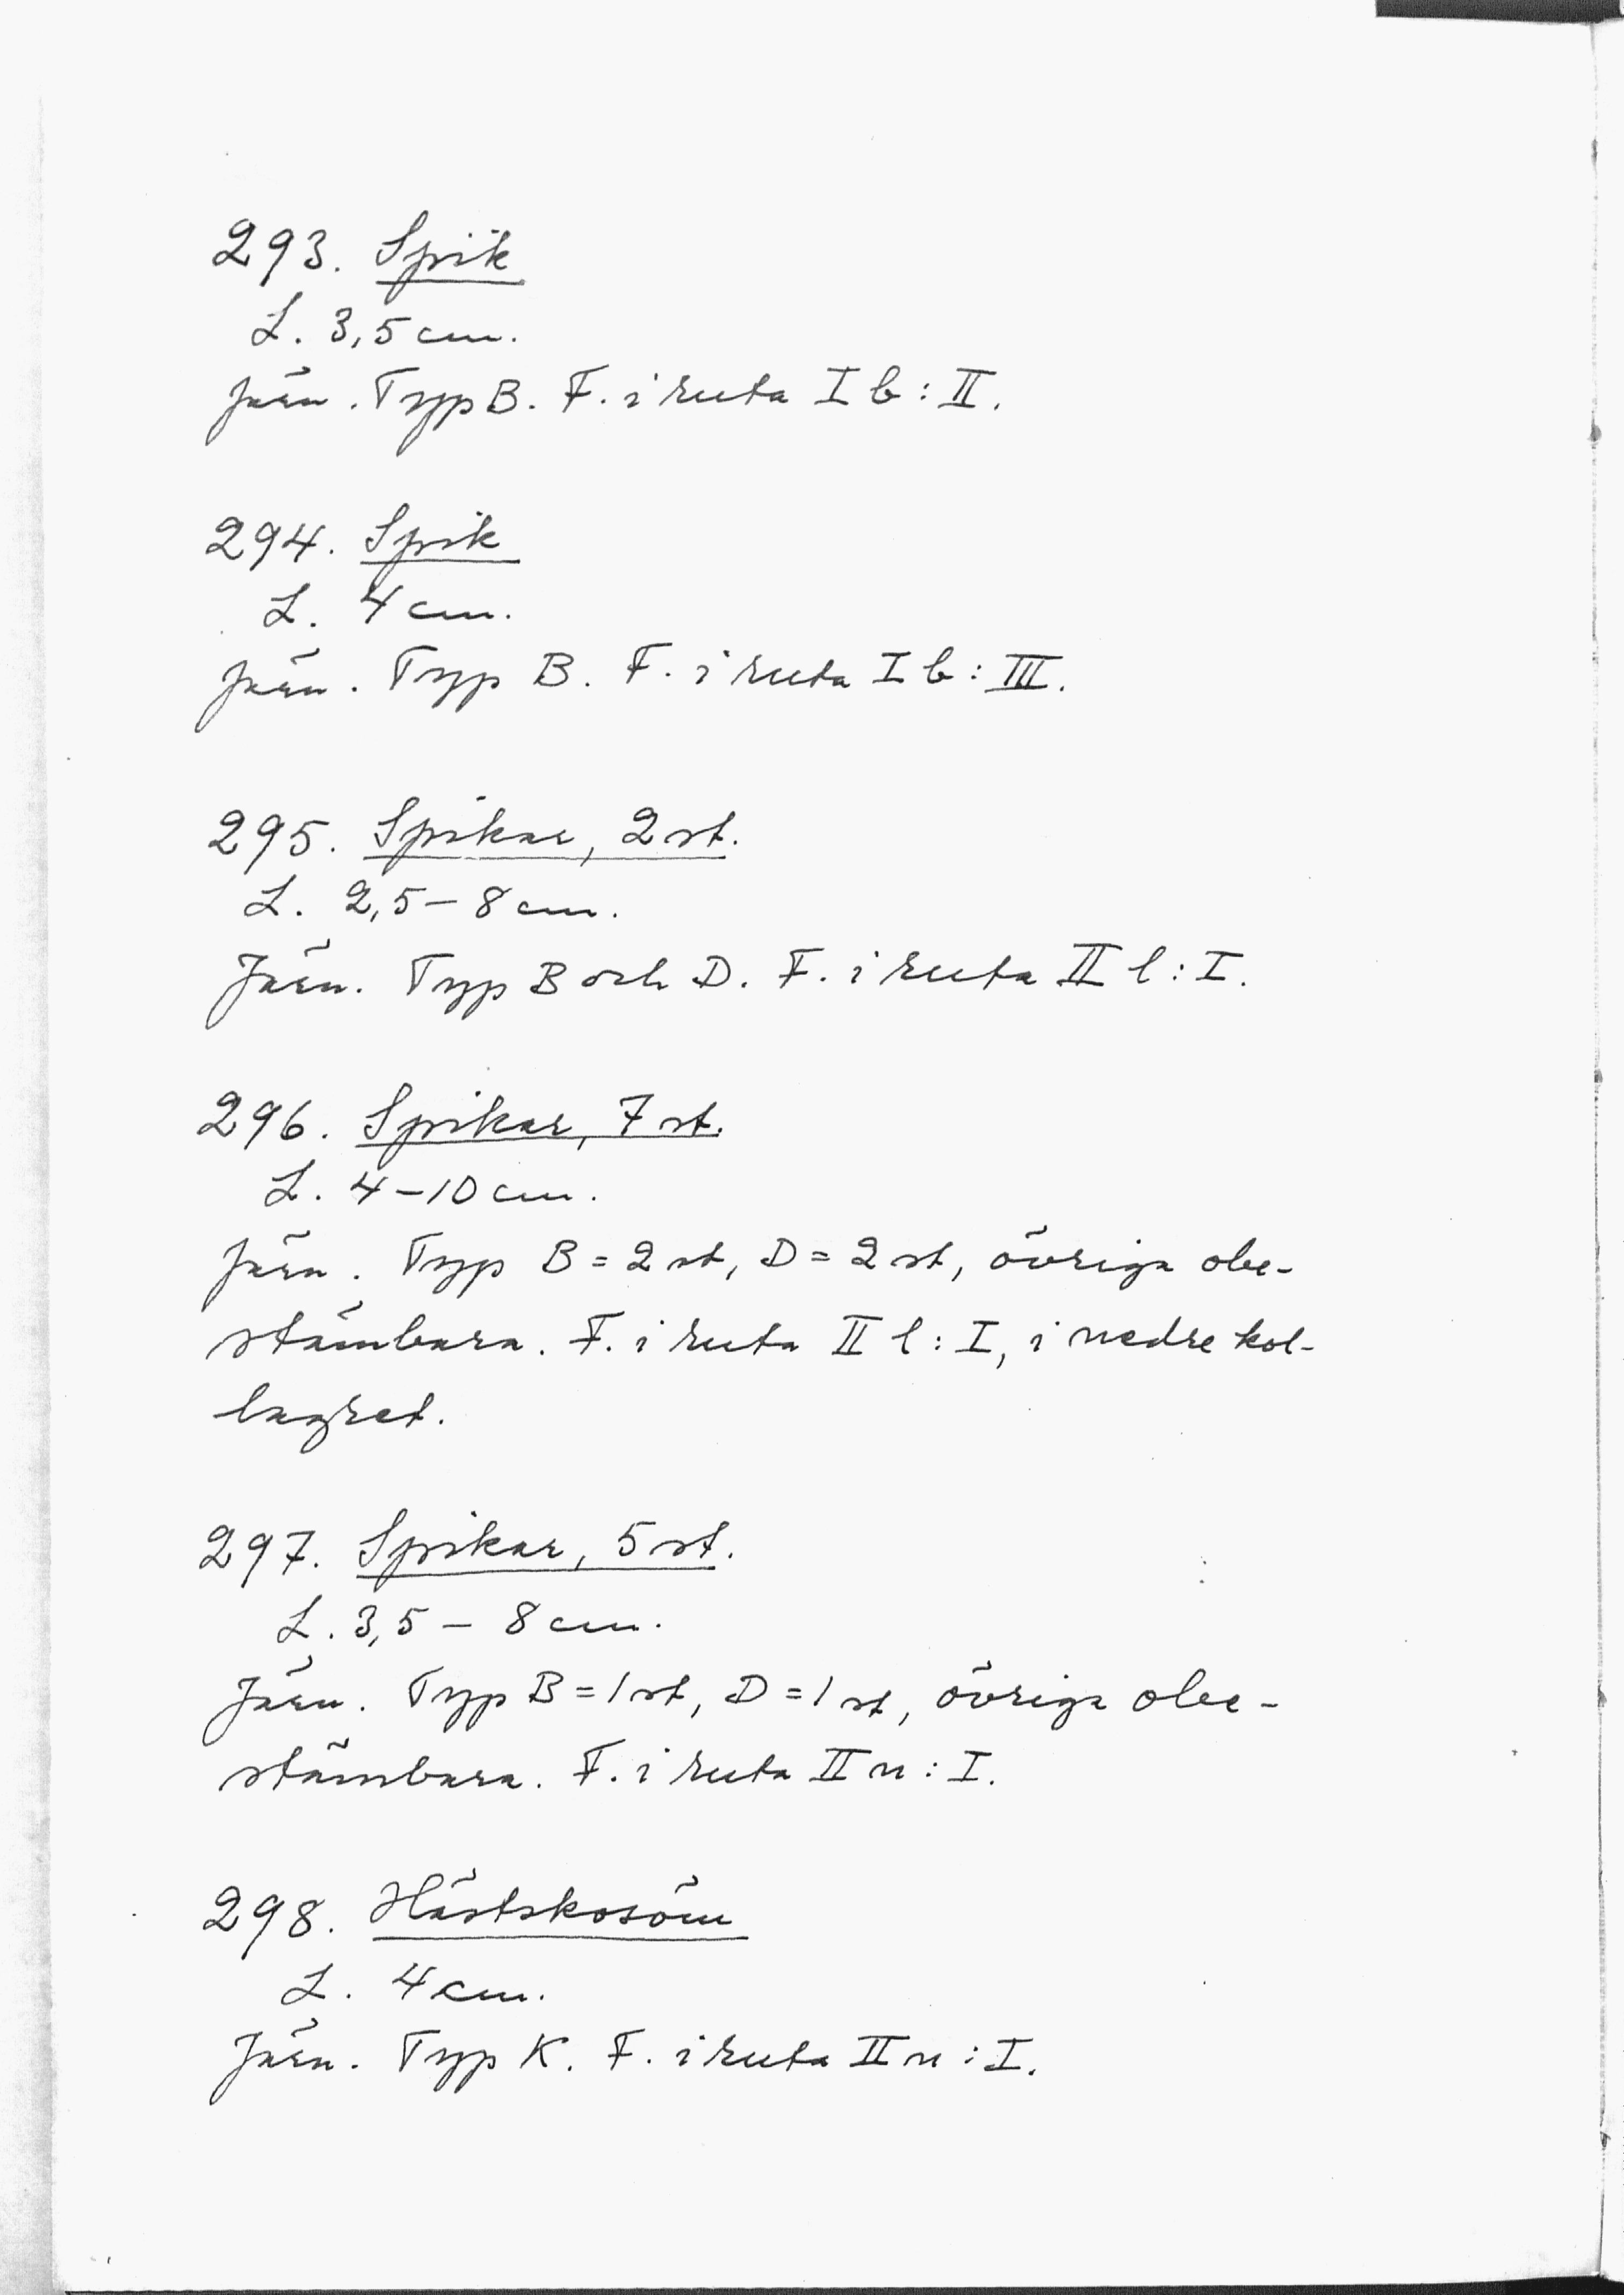 293. Spik
L. 3,5 cm.
Järn. Typ B. F. i ruta I b : II.
294. Spik
L. 4 cm.
Järn. Typ B. F. i ruta I b : III.
295. Spikar, 2 st.
L. 2,5 – 8 cm.
Järn. Typ B och D. F. i ruta II l : I.
296. Spikar, 7 st.
L. 4 – 10 cm.
Järn. Typ B = 2 st, D = 2 st, övriga obe-
stämbara. F. i ruta II l : I, i nedre kol-
lagret.
297. Spikar, 5 st.
L. 3,5 – 8 cm.
Järn. Typ B = 1 st, D = 1 st, övriga obe-
stämbara. F. i ruta II n : I.
298. Hästskosöm
L. 4 cm.
Järn. Typ K. F. i ruta II n : I.